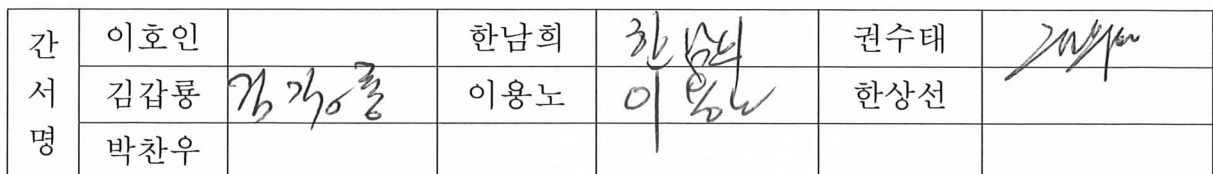 간 이호인 한남희 한남희 권수태
서 김갑룡 김갑룡 이용노 이용노 한상선
명 박찬우